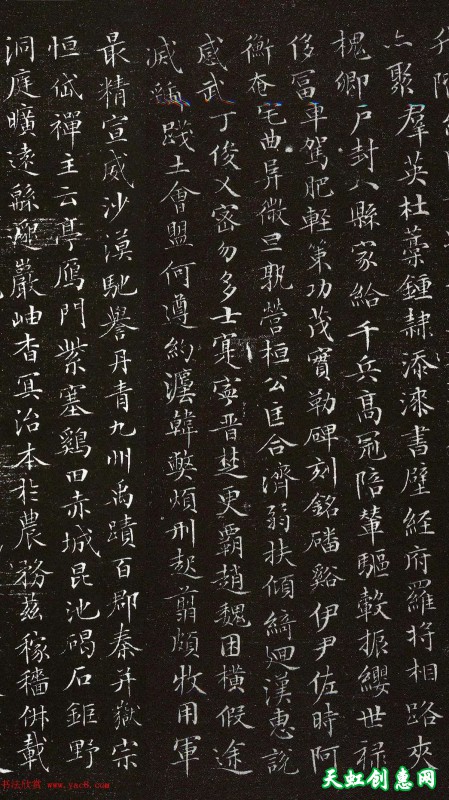 亦聚羣英杜藁鍾隸添漆書壁經府羅將相路夾
槐卿戶封八縣家給千兵高冠陪輦驅轂振纓世祿
侈富車駕肥輕策功茂實勒碑刻銘磻谿伊尹佐時阿
衡奄宅曲阜微旦孰營桓公匡合濟弱扶傾綺迴漢惠說
感武丁俊乂密勿多士寔寍晉楚更霸趙魏困橫假途
滅虢踐土會盟何遵約灋韓弊煩刑起翦頗牧用軍
最精宣威沙漠馳譽丹青九州禹蹟百郡秦并嶽宗
恒岱禪主云亭鴈門紫塞鷄田赤城昆池碣石鉅野
洞庭曠遠緜邈巖岫杳冥治本於農務茲稼穡俶載
书法欣赏 www.yac8.com
天虹创惠网